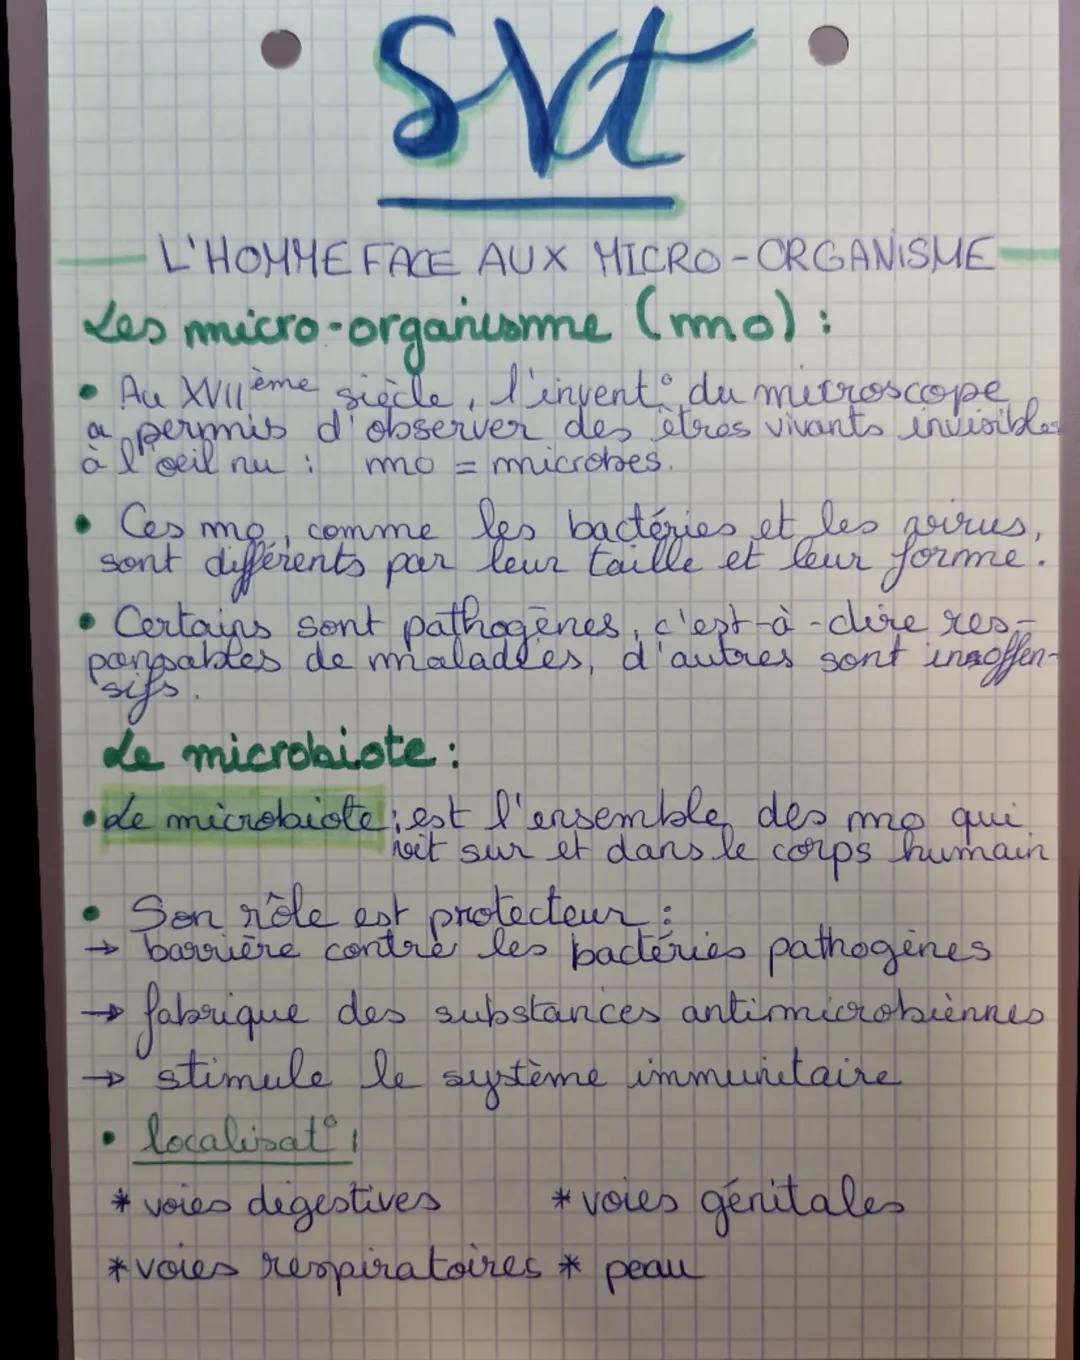 SVt
L'HOMME FACE AUX MICRO-ORGANISME
Les micro-organisme (mo) :
• Au XVIIème siècle, l'invent° du microscope
a permis d'observer des êtres vivants invisibles
à l'oeil nu : mo = microbes.
• Ces mo, comme les bactéries et les virus,
sont différents par leur taille et leur forme.
• Certains sont pathogènes, c'est-à-dire res-
ponsables de maladies, d'autres sont inoffen-
sifs.
Le microbiote :
• Le microbiote : est l'ensemble des mo qui
vit sur et dans le corps humain
• Son rôle est protecteur :
→ barrière contre les bactéries pathogènes
→ fabrique des substances antimicrobiennes
→ stimule le système immunitaire
• localisat° :
* voies digestives * voies génitales
* voies respiratoires * peau